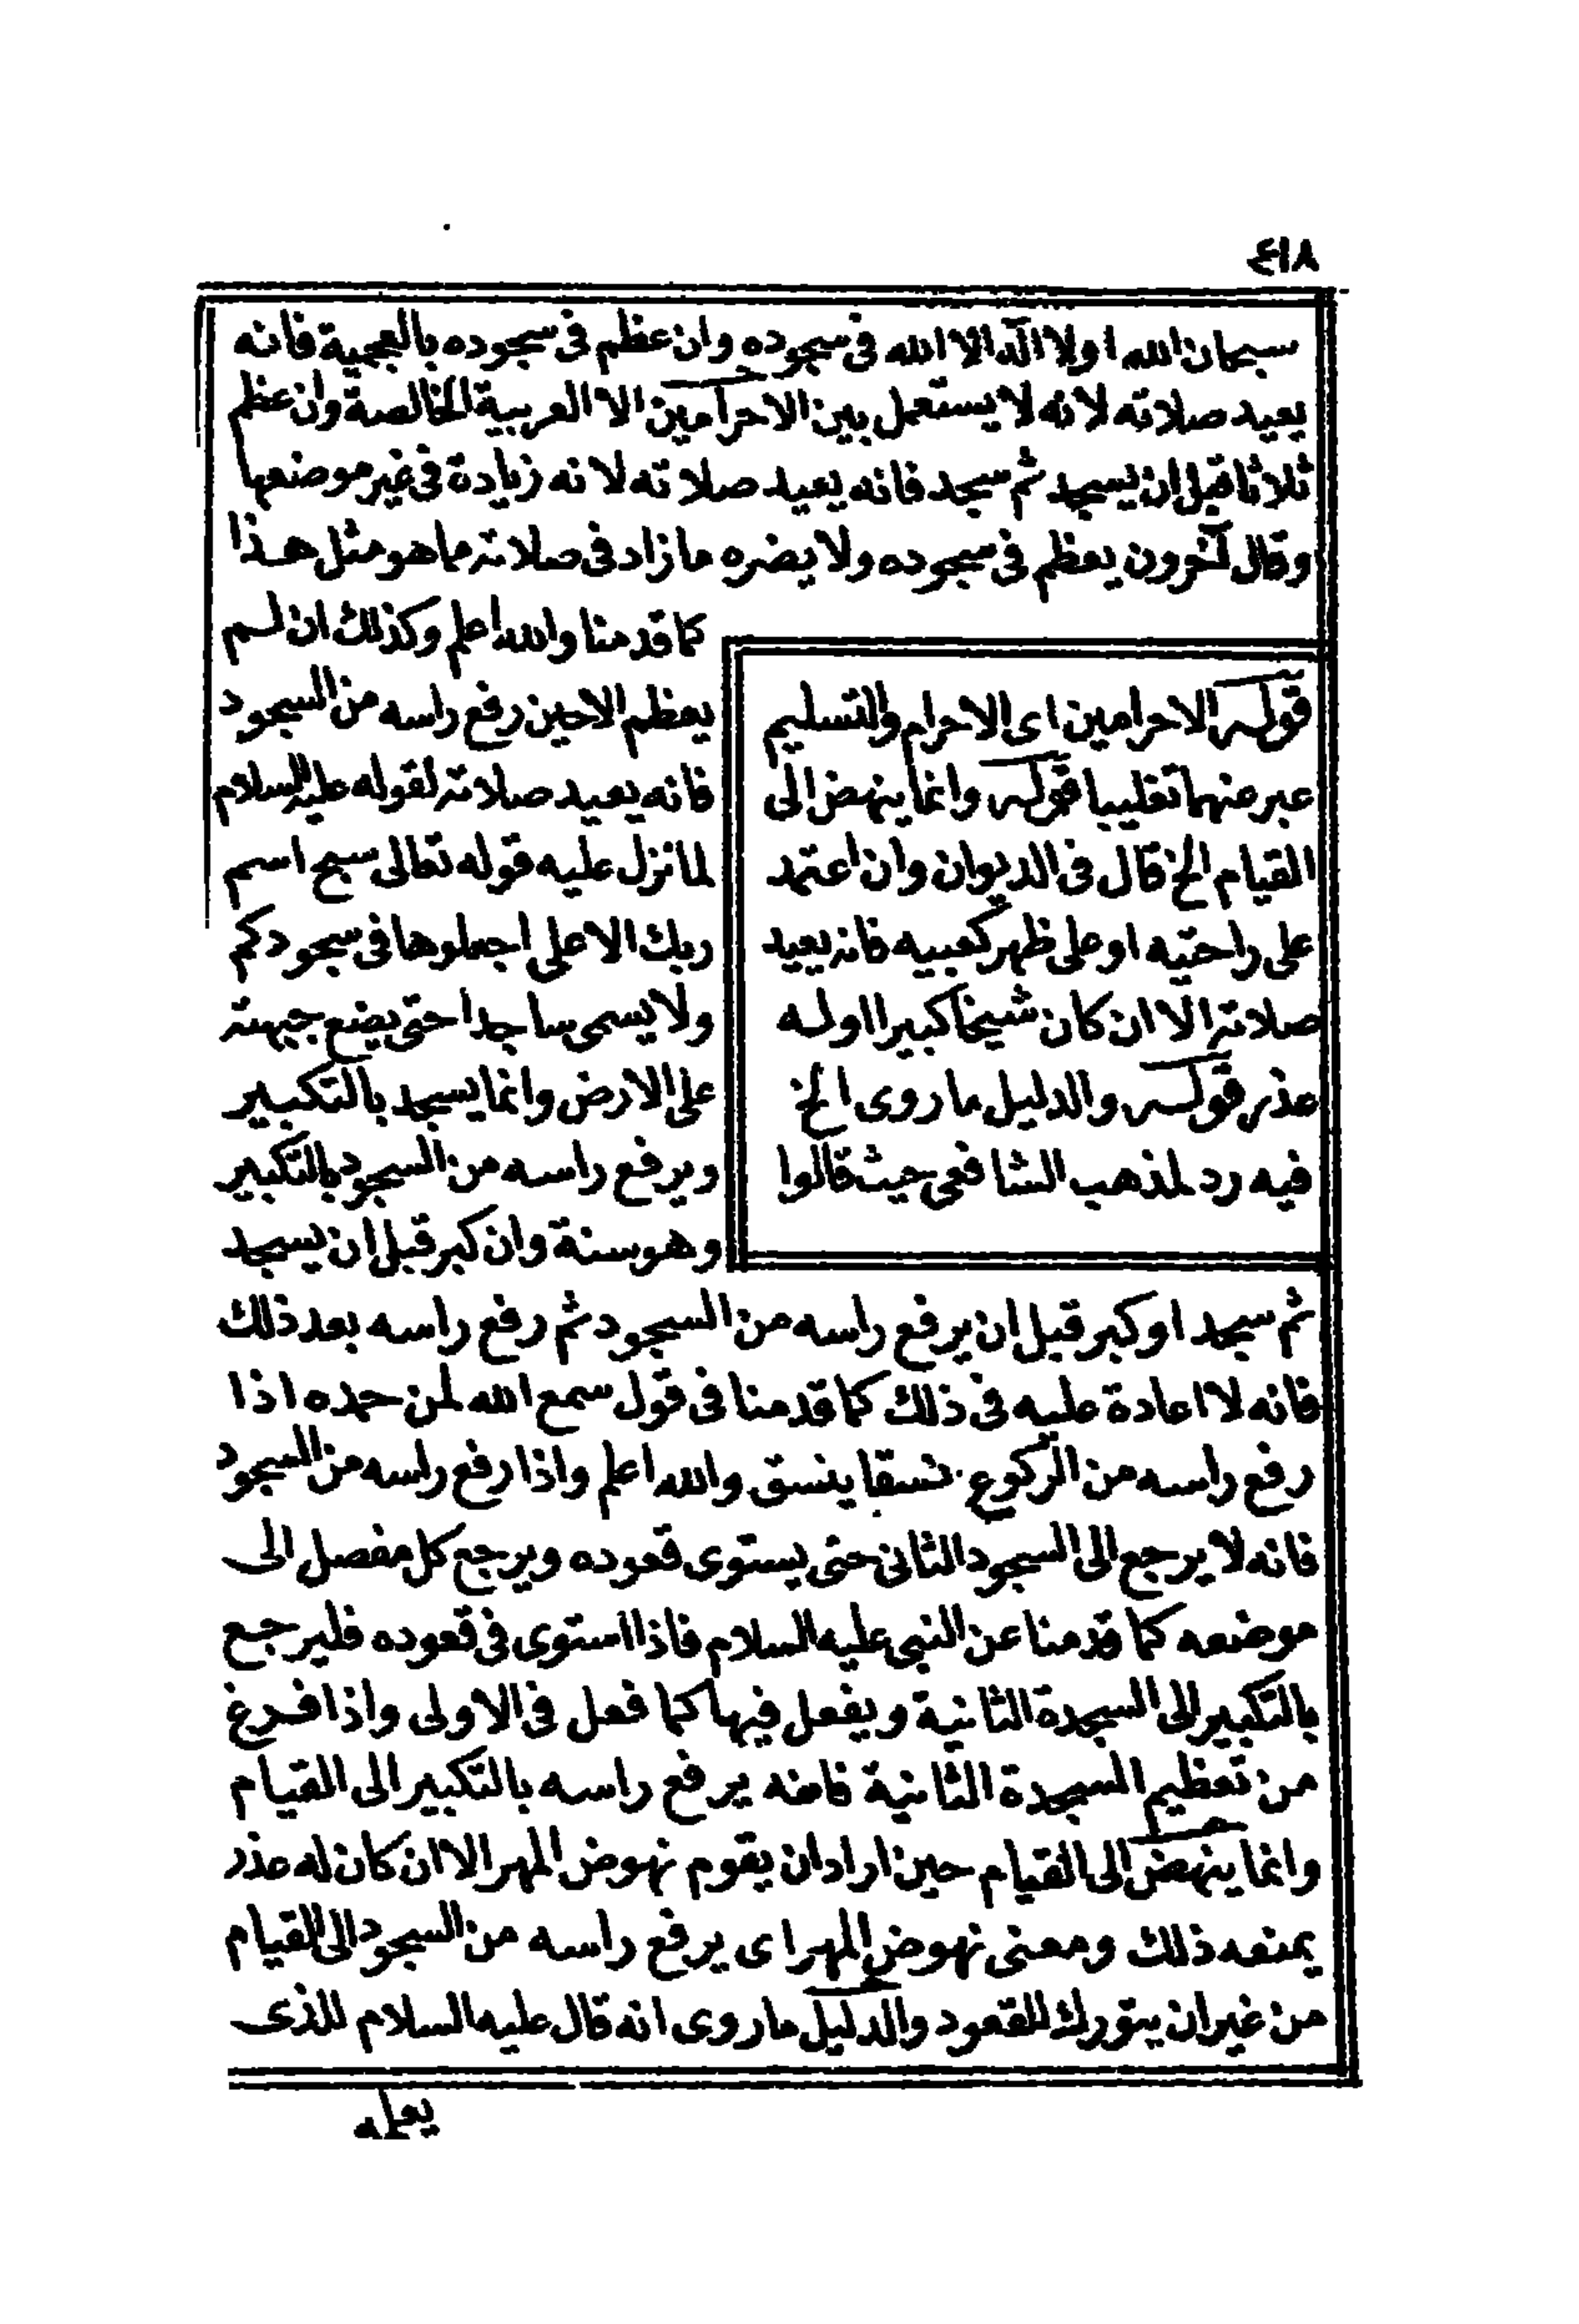 ٤١٨
سبحان الله اولا اله الا الله فى سجوده وان عظم فى سجوده بالعجمية فانه
يعيد صلاته لانه لا يستعمل بين الاحرامين الا العربية الخالصة وان عظم
ثلاثا قبل ان يسجد ثم سجد فانه يعيد صلاته لانه زيادة فى غير موضعها
وقال آخرون يعظم فى سجوده ولا يضره ما زاد فى صلاته مما هو مثل هذا
كما قدمنا والله اعلم وكذلك ان لم
يعظم الا حين رفع راسه من السجود
فانه يعيد صلاته لقوله عليه السلام
لما نزل عليه قوله تعالى سبح اسم
ربك الاعلى اجعلوها فى سجودكم
ولا يسمى ساجدا حتى يضع جبهته
على الارض وانما يسجد بالتكبير
ويرفع راسه من السجود بالتكبير
وهو سنة وان كبر قبل ان يسجد
قوله الاحرامين اى الاحرام والتسليم
عبر عنهما تغليبا قوله وانما ينهض الى
القيام الخ قال فى الديوان وان اعتمد
على راحتيه او على ظهر كعبيه فانه يعيد
صلاته الا ان كان شيخا كبيرا اوله
عذر قوله والدليل ما روى الخ
فيه رد لمذهب الشافعى حيث قالوا
ثم سجد او كبر قبل ان يرفع راسه من السجود ثم رفع راسه بعد ذلك
فانه لا اعادة عليه فى ذلك كما قدمنا فى قول سمع الله لمن حمده اذا
رفع راسه من الركوع نسقا ينسق والله اعلم واذا رفع راسه من السجود
فانه لا يرجع الى السجود الثانى حتى يستوى قعوده ويرجع كل مفصل الى
موضعه كما قدمنا عن النبى عليه السلام فاذا استوى فى قعوده فليرجع
بالتكبير الى السجدة الثانية ويفعل فيها كما فعل فى الاولى واذا فرغ
من تعظيم السجدة الثانية فانه يرفع راسه بالتكبير الى القيام
وانما ينهض الى القيام حين اراد ان يقوم نهوض المهر الا ان كان له عذر
يمنعه ذلك ومعنى نهوض المهر اى يرفع راسه من السجود الى القيام
من غير ان يتورك للقعود والدليل ما روى انه قال عليه السلام للذى
يعلمه